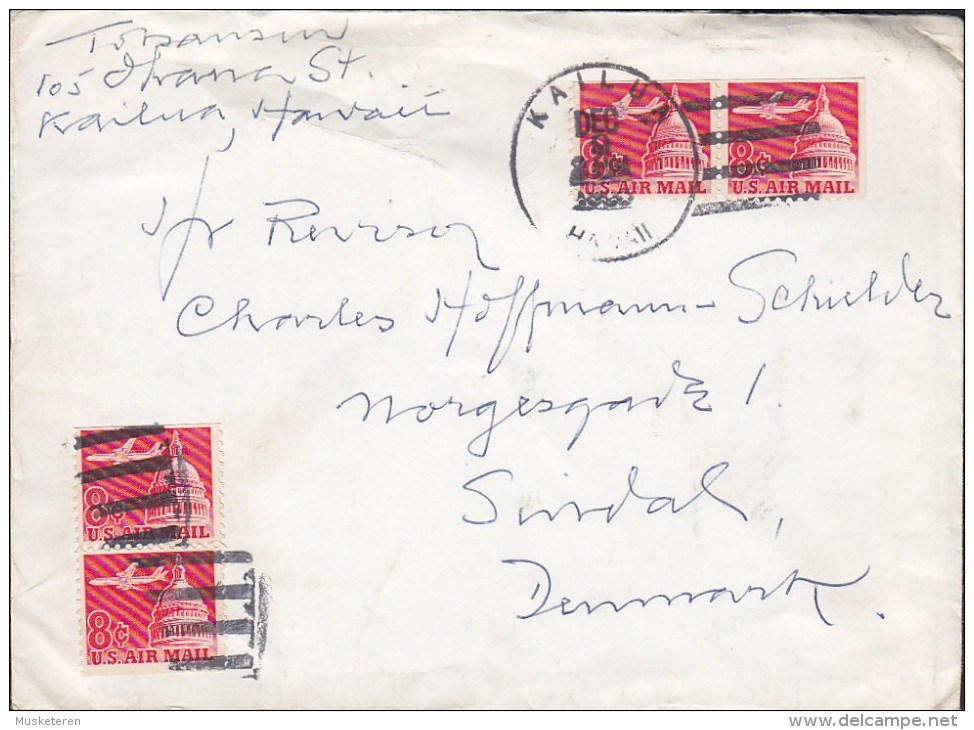 105 Ihana St.
Kailua, Hawaii
KAILUA
DEC
HAWAII
8¢ 8¢
U.S. AIR MAIL U.S. AIR MAIL
Charles Hoffmann-Schielder
Norgesgade 1.
Sindal,
Denmark.
8¢
U.S. AIR MAIL
8¢
U.S. AIR MAIL
Musketeren
delcampe.net